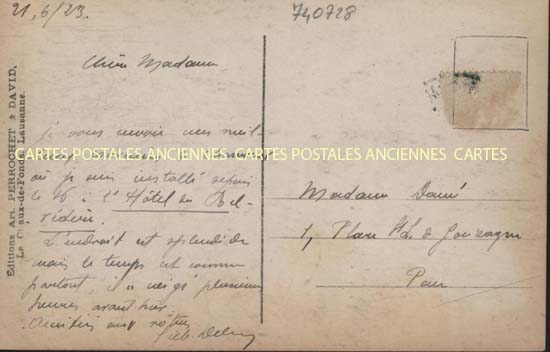 21,6/23.
740728
Chère Madame
Je vous envoie ces
CARTES POSTALES ANCIENNES CARTES POSTALES ANCIENNES CARTES
où je suis installé depuis
le 16 à l'Hôtel du Bel-
védère.
L'endroit est splendide
mais le temps est comme
partout, il a neigé plusieurs
heures avant hier.
Amitiés aux vôtres
Madame
1, Place
Pau
Editions Art. PERROCHET & DAVID,
La Chaux-de-Fonds, Lausanne.